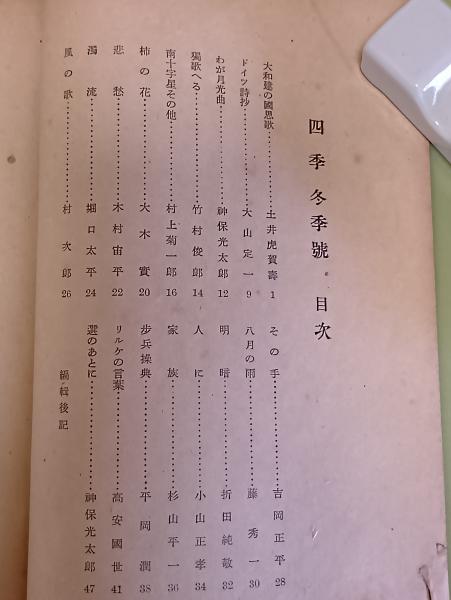 四季 冬季號 目次
大和建の國思歌…………土井虎賀壽 1
ドイツ詩抄…………大山定一 9
わが月光曲…………神保光太郎 12
獨歌へる…………竹村俊郎 14
南十字星その他…………村上菊一郎 16
柿の花…………大木實 20
悲愁…………木村宙平 22
濁流…………堀口太平 24
風の歌…………村次郎 26
その手…………吉岡正平 28
八月の雨…………藤秀一 30
明暗…………折田純敬 32
人に…………小山正孝 34
家族…………杉山平一 36
步兵操典…………平岡潤 38
リルケの言葉…………高安國世 41
選のあとに…………神保光太郎 47
編輯後記